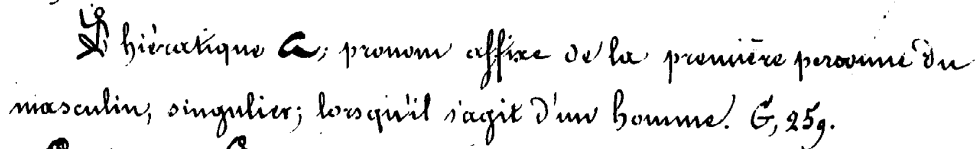 hiératique, pronom affixe de la première personne du
masculin, singulier; lorsqu'il s'agit d'un homme. G, 259.